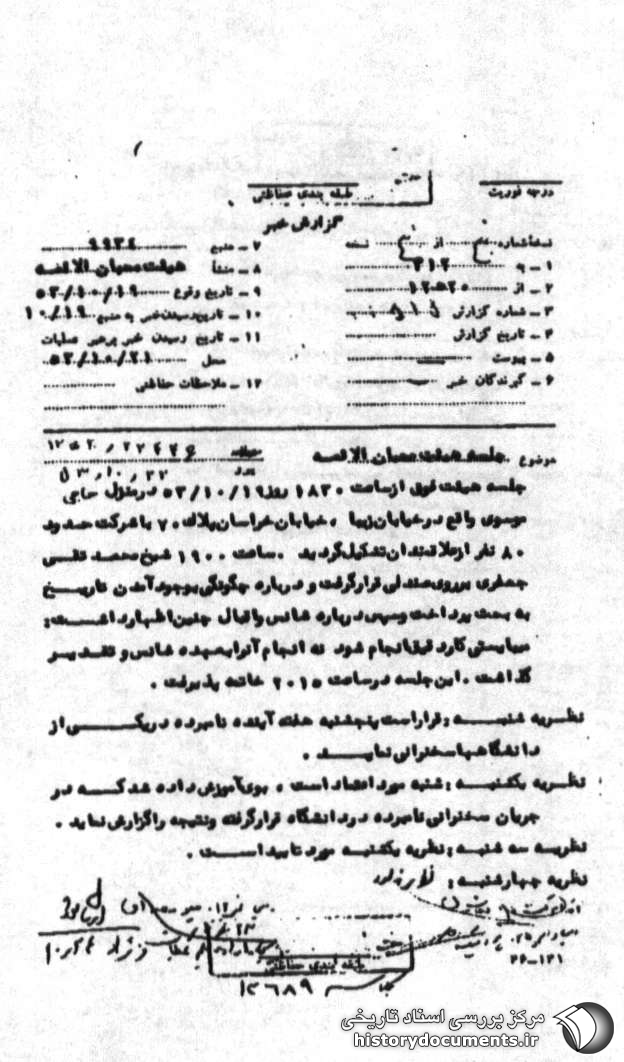 درجه فوریت
طبقه بندی حفاظتی
گزارش خبر
نسخه شماره از نسخه
۱ ـ به ۳۱۲
۲ ـ از ۱۲ه۲۰
۳ ـ شماره گزارش
۴ ـ تاریخ گزارش
۵ ـ پیوست
۶ ـ گیرندگان خبر
۷ ـ منبع ۹۹۳۴
۸ ـ منشأ هیئت محبان الائمه
۹ ـ تاریخ وقوع ۵۳/۱۰/۱۹
۱۰ ـ تاریخ رسیدن خبر به منبع ۱۰/۱۹
۱۱ ـ تاریخ رسیدن خبر برهبر عملیات
محل ۵۳/۱۰/۲۱
۱۲ ـ ملاحظات حفاظتی
موضوع جلسه هیئت محبان الائمه
جلسه هیئت فوق از ساعت ۱۸۳۰ روز ۵۳/۱۰/۱۹ در منزل حاجی
موسوی واقع در خیابان زیبا ، خیابان خراسان پلاک ۷۰ با شرکت حدود
۸۰ نفر از علاقمندان تشکیل گردید . ساعت ۱۹۰۰ شیخ محمد تقی
جعفری بر روی صندلی قرار گرفت و درباره چگونگی بوجود آمدن تاریخ
به بحث پرداخت و سپس درباره شانس و اقبال چنین اظهار داشت :
میبایستی کار دقیق انجام شود نه انجام آنرا بعهده شانس و تقدیر
گذاشت . این جلسه در ساعت ۲۰۱۵ خاتمه پذیرفت .
نظریه شنبه : قرار است پنجشنبه هفته آینده نامبرده در یکی از
دانشگاهها سخنرانی نماید .
نظریه یکشنبه : شنبه مورد اعتماد است ، بوی آموزش داده شد که در
جریان سخنرانی نامبرده در دانشگاه قرار گرفته و نتیجه را گزارش نماید .
نظریه سه شنبه : نظریه یکشنبه مورد تایید است .
نظریه چهارشنبه :
طبقه بندی حفاظتی
۱۲۶۸۹
مرکز بررسی اسناد تاریخی
historydocuments.ir